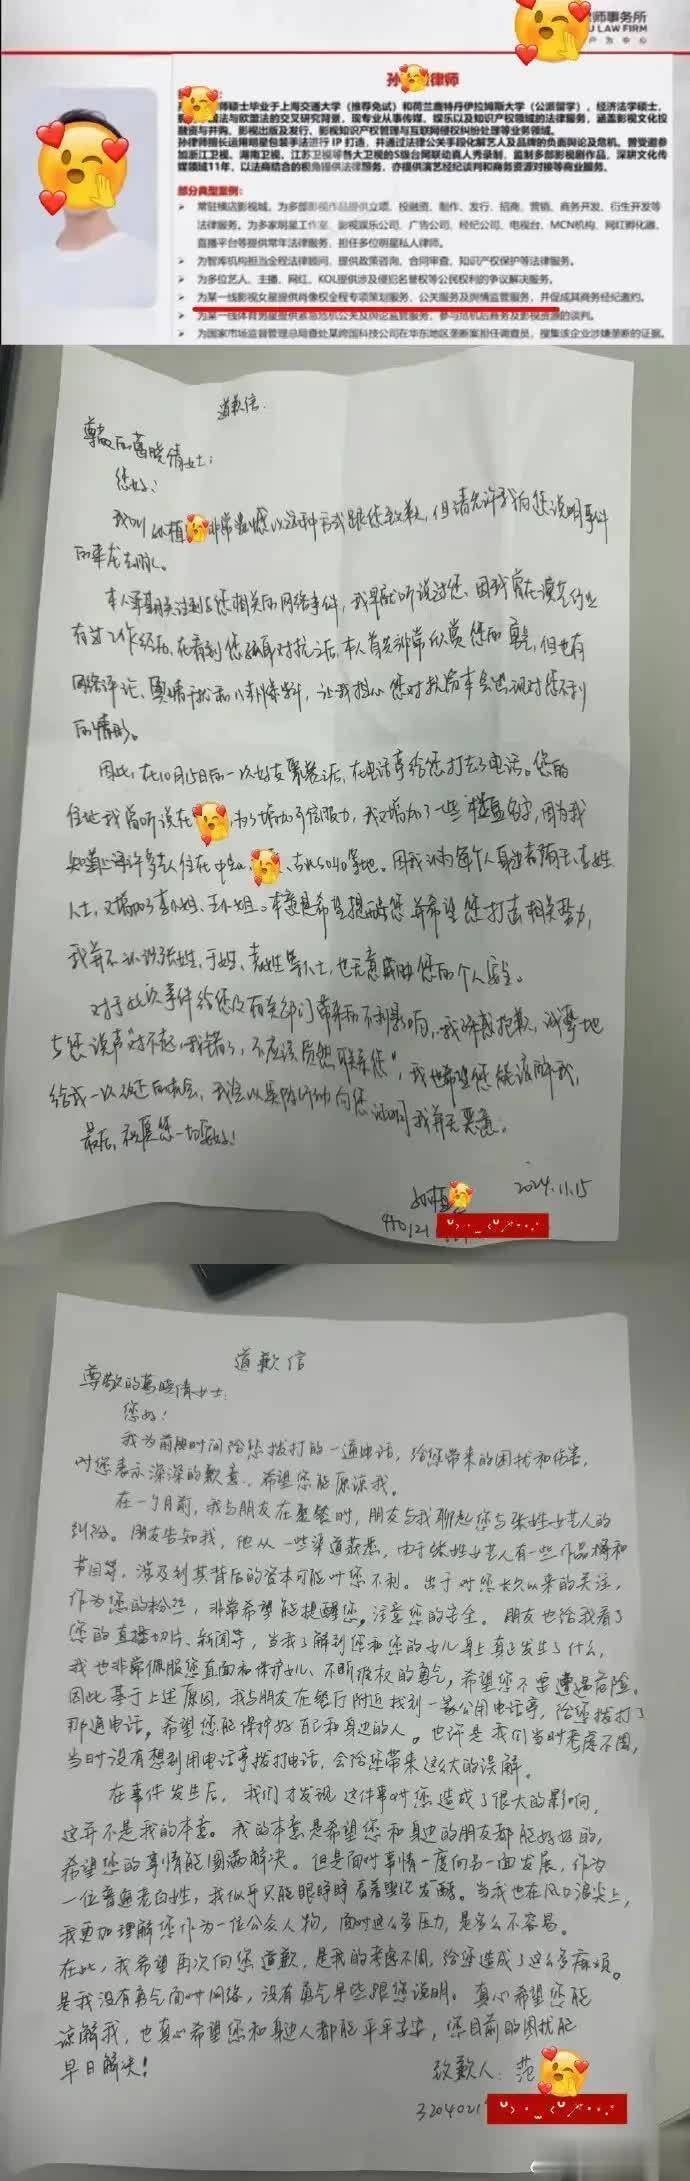 师事务所
U LAW FIRM
户为中心
孙 律师
师硕士毕业于上海交通大学（推荐免试）和荷兰鹿特丹伊拉姆斯大学（公派留学），经济法学硕士，
国法与欧盟法的交叉研究背景，现专业从事传媒、娱乐以及知识产权领域的法律服务，涵盖影视文化投
融资与并购、影视出版及发行、影视知识产权管理与互联网侵权纠纷处理等业务领域。
孙律师擅长运用明星包装手法进行 IP 打造，并通过法律公关手段化解艺人及品牌的负面舆论及危机。曾受邀参
加浙江卫视、湖南卫视、江苏卫视等各大卫视的S级台网联动真人秀录制，监制多部影视剧作品，深耕文化传
媒领域11年，以法商结合的视角提供法律服务，亦提供演艺经纪谈判和商务资源对接等商业服务。
部分典型案例：
常驻横店影视城，为多部影视作品提供立项、投融资、制作、发行、招商、营销、商务开发、衍生开发等
法律服务，为多家明星工作室、影视娱乐公司、广告公司、经纪公司、电视台、MCN机构、网红孵化器、
直播平台等提供常年法律服务，担任多位明星私人律师。
为智库机构担当全程法律顾问，提供政策咨询、合同审查、知识产权保护等法律服务。
为多位艺人、主播、网红、KOL提供涉及侵犯名誉权等公民权利的争议解决服务。
为某一线影视女星提供肖像权全程专项策划服务、公关服务及舆情监管服务，并促成其商务经纪邀约。
为某一线体育男星提供紧急危机公关及舆论监管服务，参与危机后商务及影视资源的谈判。
为国家市场监督管理总局查处某跨国科技公司在华东地区垄断案担任调查员，搜集该企业涉嫌垄断的证据。
道歉信
尊敬的葛晓倩女士：
您好！
我叫孙植 非常 以这种方式跟您致歉，但请允许我向您说明事件
的来龙去脉。
本人 关注到与您相关的网络事件，我早就听说过您，因我曾在演艺行业
有过工作经历，在看到您孤身对抗之后，本人首先非常欣赏您的勇气，但也有
网络评论、舆情 ，让我担心您对抗 会出现对您不利
的情形。
因此，在10月15日的一次好友聚餐之后，在电话亭给您打去了电话。您的
住址我曾听说在 ，为了增加可信服力，我又增加了一些楼盘名字，因为我
知道 许多艺人住在中 、 5040等地。因我认为每个人身边都有王、李姓
人士，又增加了李小姐、王小姐。本意是希望提醒您并希望您打击相关势力，
我并不认识张姓、于姓、袁姓等人士，也无意威胁您的个人安全。
对于此次事件给您及有关部门带来的不利影响，我深感抱歉，诚挚地
与您说声“对不起，我错了，不应该贸然联系您”，我也希望您能谅解我，
给我一次改过的机会，我会以实际行动向您证明我并无恶意。
最后，祝愿您一切安好！
孙植
2024.11.15
440121
道歉信
尊敬的葛晓倩女士：
您好！
我为前段时间给您拨打的一通电话，给您带来的困扰和伤害，
对您表示深深的歉意，希望您能原谅我。
在一个月前，我与朋友在聚餐时，朋友与我聊起您与张姓女艺人的
纠纷。朋友告知我，他从一些渠道获悉，由于张姓女艺人有一些作品将和
节目等，涉及到其背后的资本可能对您不利。出于对您长久以来的关注，
作为您的粉丝，非常希望能提醒您，注意您的安全。朋友也给我看了
您的直播切片、新闻等，当我了解到您和您的女儿身上真正发生了什么，
我也非常佩服您直面和保护女儿、不断维权的勇气，希望您不要遭遇危险。
因此基于上述原因，我与朋友在餐厅附近找到一家公用电话亭，给您拨打了
那通电话，希望您能保护好自己和身边的人。也许是我们当时考虑不周，
当时没有想到用电话亭拨打电话，会给您带来这么大的误解。
在事件发生后，我们才发现这件事对您造成了很大的影响，
这并不是我的本意。我的本意是希望您和身边的朋友都能好好的，
希望您的事情能圆满解决。但是面对事情一度向另一面发展，作为
一位普通老百姓，我似乎只能眼睁睁看着舆论发酵。当我也在风口浪尖上，
我更加理解您作为一位公众人物，面对这么多压力，是多么不容易。
在此，我希望再次向您道歉，是我的考虑不周，给您造成了这么多麻烦。
是我没有勇气面对网络，没有勇气早些跟您说明。真心希望您能
谅解我，也真心希望您和身边人都能平平安安，您目前的困扰能
早日解决！
致歉人：范
3204021